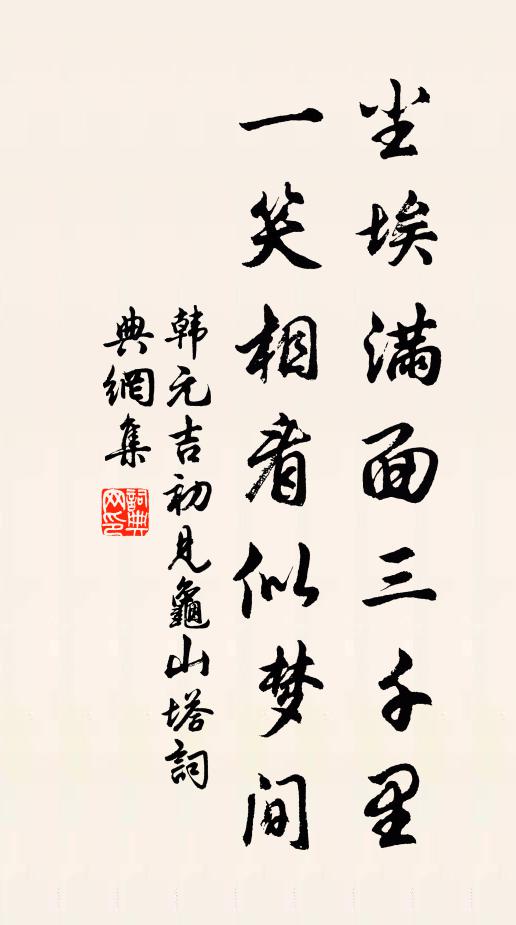 尘埃满面三千里
一笑相看似梦间
韩元吉初见龜山塔詞
典網集
詞典网印